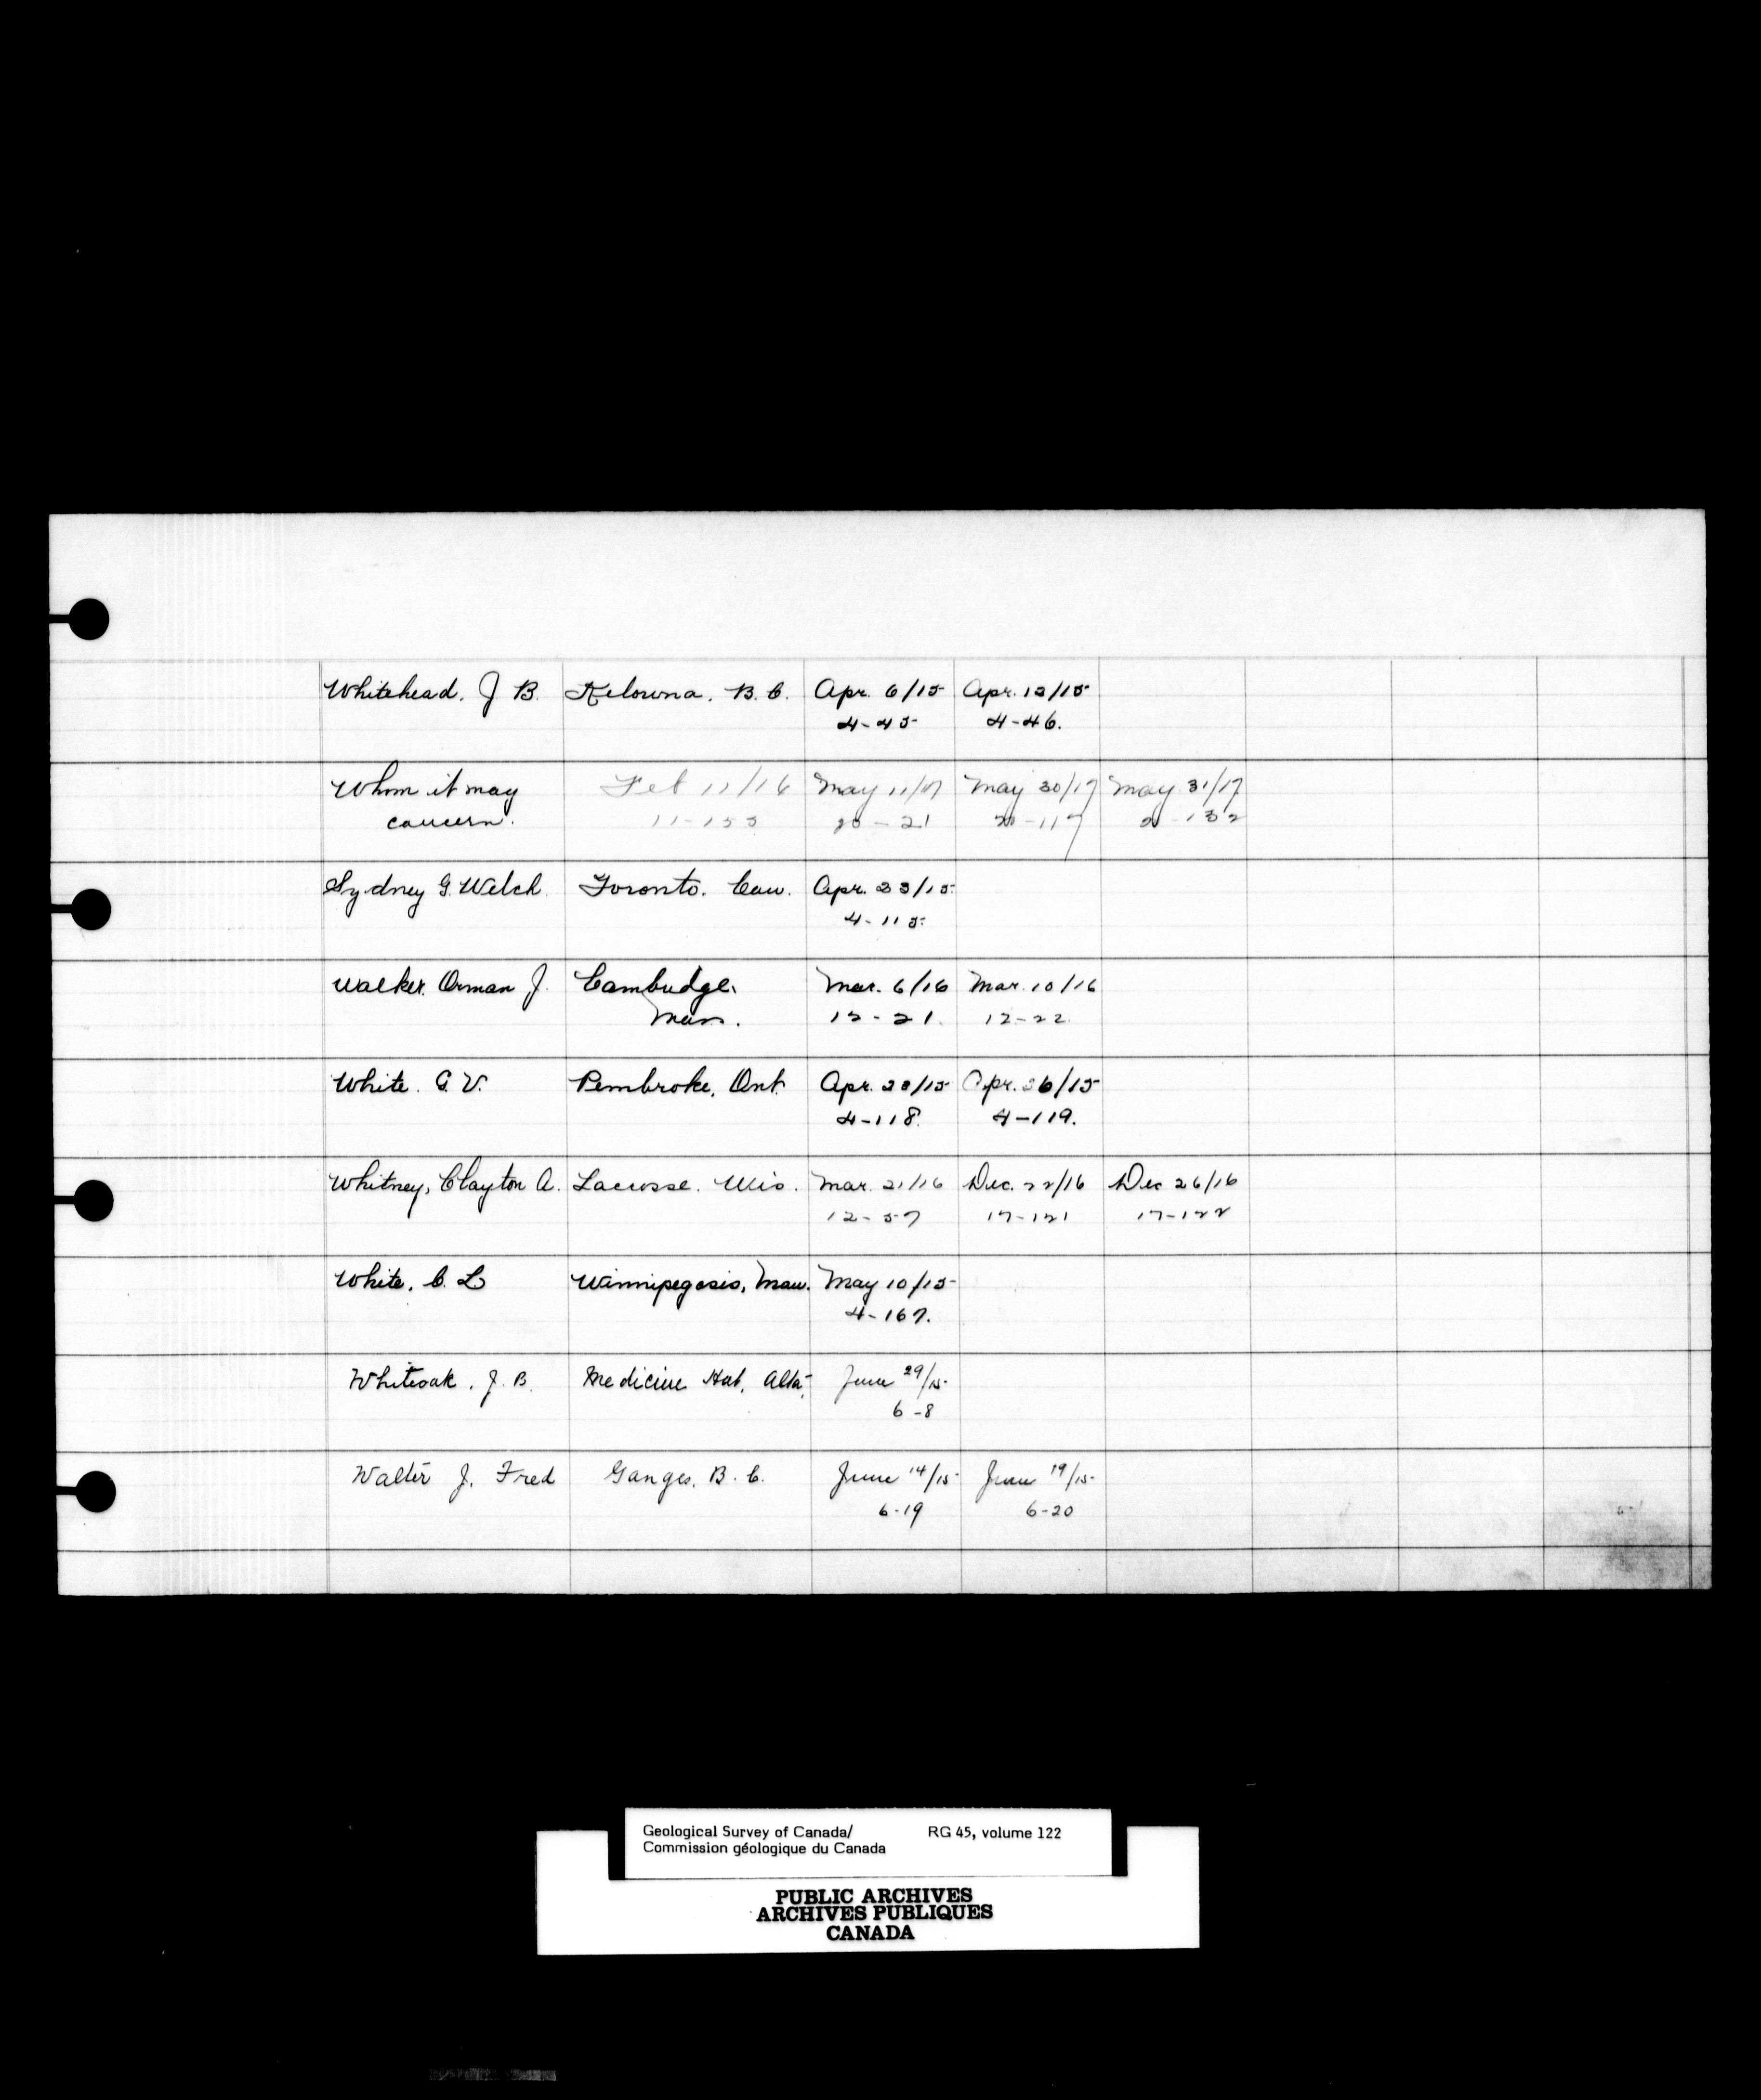 Whitehead. J B. Kelowna. B. C. Apr. 6/15 Apr. 12/15
4-45 4-46.
Whom it may Feb 11/16 May 11/17 May 30/17 May 31/17
concern. 11-153 20-21 20-117 20-132
Sydney G. Welch. Toronto. Can. Apr. 23/15.
4-115.
Walker. Orman J. Cambridge. Mar. 6/16 Mar. 10/16
Mass. 12-21. 12-22.
White. G. V. Pembroke, Ont. Apr. 20/15 Apr. 26/15
4-118. 4-119.
Whitney, Clayton A. Lacrosse. Wis. Mar. 21/16 Dec. 22/16 Dec 26/16
12-57 17-121 17-122
White, C. L Winnipegosis, Man. May 10/15
4-167.
Whiteoak, J. B. Medicine Hat, Alta, June 29/15
6-8
Walter J. Fred Ganges, B. C. June 14/15 June 19/15
6-19 6-20
Geological Survey of Canada/ RG 45, volume 122
Commission géologique du Canada
PUBLIC ARCHIVES
ARCHIVES PUBLIQUES
CANADA